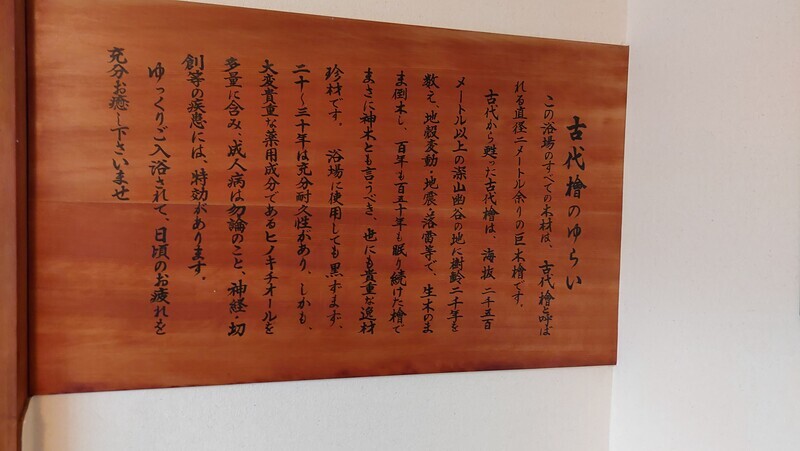 古代檜のゆらい
この浴場のすべての木材は、古代檜と呼ば
れる直径二メートル余りの巨木檜です。
古代から甦った古代檜は、海抜二千五百
メートル以上の深山幽谷の地に樹齢二千年を
数え、地殻変動・地震・落雷等で、生木のま
ま倒木し、百年も百五十年も眠り続けた檜で
まさに神木とも言うべき、世にも貴重な逸材
珍材です。浴場に使用しても黒ずまず、
二十～三十年は充分耐久性があり、しかも、
大変貴重な薬用成分であるヒノキチオールを
多量に含み、成人病は勿論のこと、神経・切
創等の疾患には、特効があります。
ゆっくりご入浴されて、日頃のお疲れを
充分お癒し下さいませ